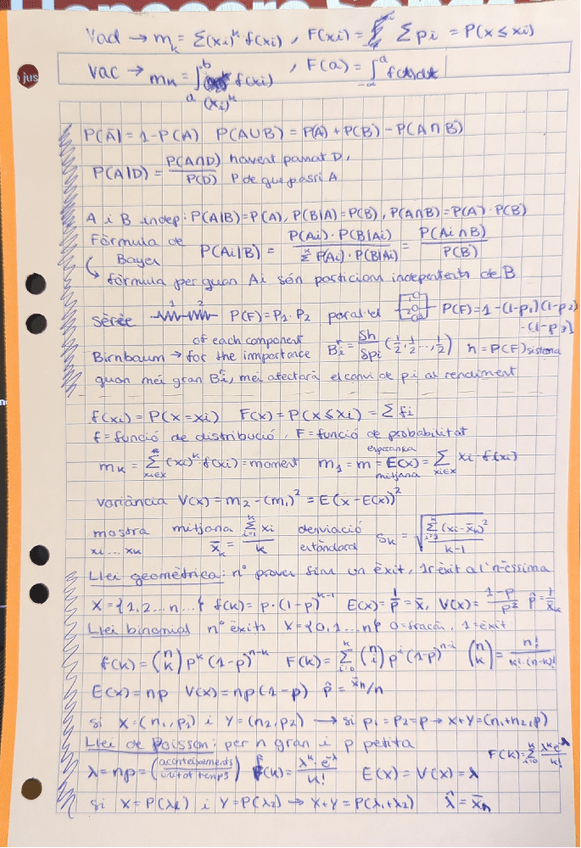 Vad → m_k = Σ(xi)^k f(xi), F(xi) = Σ pi = P(x ≤ xi)
vac → m_k = ∫_a^b (xi)^k f(xi), F(a) = ∫_{-∞}^a f(x)dx
jus
P(Ā) = 1 - P(A) P(A∪B) = P(A) + P(B) - P(A∩B)
P(A|D) = P(A∩D) / P(D) havent passat D, P de que passi A
A i B indep: P(A|B) = P(A), P(B|A) = P(B), P(A∩B) = P(A)·P(B)
Fórmula de Bayes P(Ai|B) = P(Ai)·P(B|Ai) / Σ P(Ai)·P(B|Ai) = P(Ai∩B) / P(B)
↳ fórmula per quan Ai són particions independents de B
sèrie 1 2 P(F) = P1·P2 paral·lel P(F) = 1 - (1-p1)(1-p2)·(1-p3)
Birnbaum → of each component for the importance B_i = δh/δpi (1/2, 1/2, ..., 1/2) h = P(F) sistema
quan més gran Bi, més afectarà el canvi de pi al rendiment
f(xi) = P(x = xi) F(x) = P(x ≤ xi) = Σ fi
f = funció de distribució, F = funció de probabilitat
m_k = Σ_{xi∈x} (xi)^k · f(xi) = moment m1 = m = E(x) = Σ_{xi∈x} xi · f(xi) esperança mitjana
variància V(x) = m2 - (m1)² = E(x - E(x))²
mostra x1 ... xk mitjana x̄_k = Σ_{i=1}^k xi / k desviació estàndard S_k = √(Σ_{i=1}^k (xi - x̄_k)² / (k-1))
Llei geomètrica: nº proves fins un èxit, 1r èxit a l'n-èssima
X = {1, 2 ... n ...} f(k) = p·(1-p)^{k-1} E(x) = 1/p = x̄, V(x) = (1-p)/p² p̂ = 1/x̄_n
Llei binomial nº èxits X = {0, 1 ... n} 0 = fracàs, 1 = èxit
f(k) = (n k) p^k (1-p)^{n-k} F(k) = Σ_{i=0}^k (n i) p^i (1-p)^{n-i} (n k) = n! / k!·(n-k)!
E(x) = np V(x) = np(1-p) p̂ = x̄n/n
si X = (n1, p1) i Y = (n2, p2) → si p1 = p2 = p → X+Y = (n1+n2, p)
Llei de Poisson: per n gran i p petita F(k) = Σ_{i=0}^k λ^k e^{-λ} / k!
λ = np = (aconteixements / unitat temps) f(k) = λ^k e^{-λ} / k! E(x) = V(x) = λ
si X = P(λ1) i Y = P(λ2) → X+Y = P(λ1+λ2) λ̂ = x̄_n